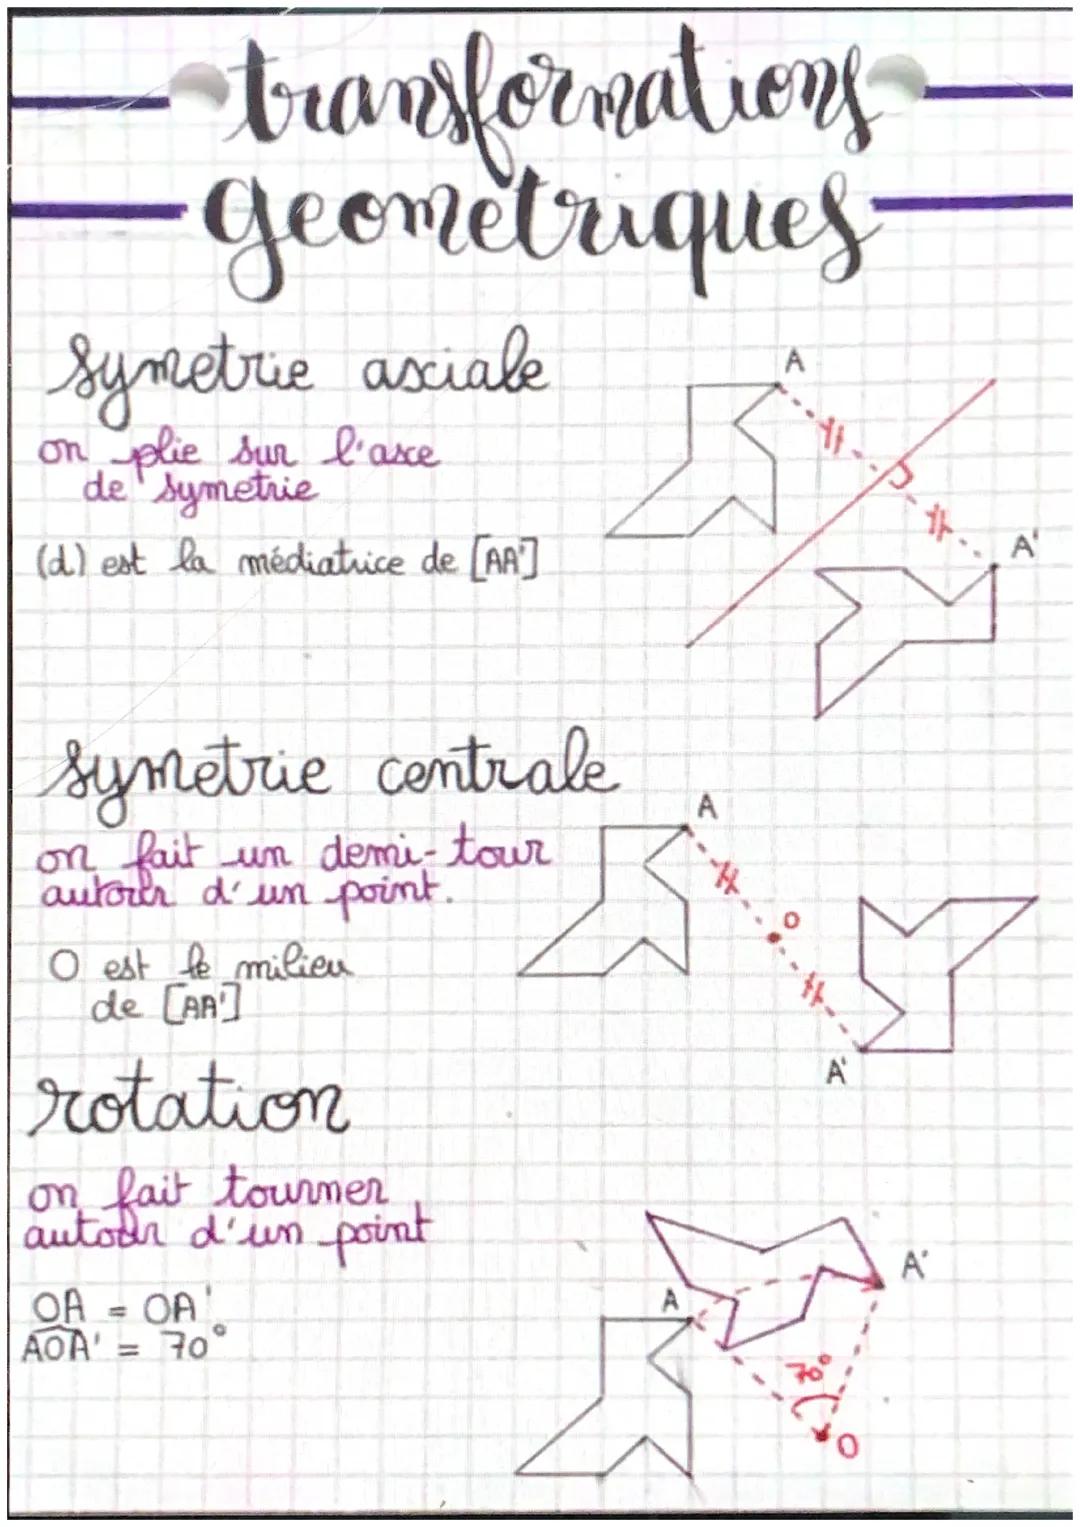 transformations
geometriques
symetrie axciale
A
on plie sur l'axe
de symetrie
(d) est la médiatrice de [AA']
A'
symetrie centrale
A
on fait un demi-tour
autour d'un point.
O
O est le milieu
de [AA']
A'
rotation
on fait tourner
autour d'un point
A'
A
OA = OA'
AOA' = 70°
70°
O